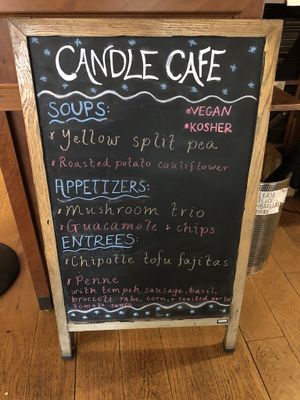 CANDLE CAFE
SOUPS:
*VEGAN
*KOSHER
*Yellow split pea
*Roasted potato cauliflower
APPETIZERS:
*Mushroom trio
*Guacamole + chips
ENTREES:
*Chipotle tofu fajitas
*Penne
with tempeh, sausage, basil,
broccoli rabe, corn, + roasted garlic
tomato sauce
PLEASE
PLACE
UMBRELLAS
HERE